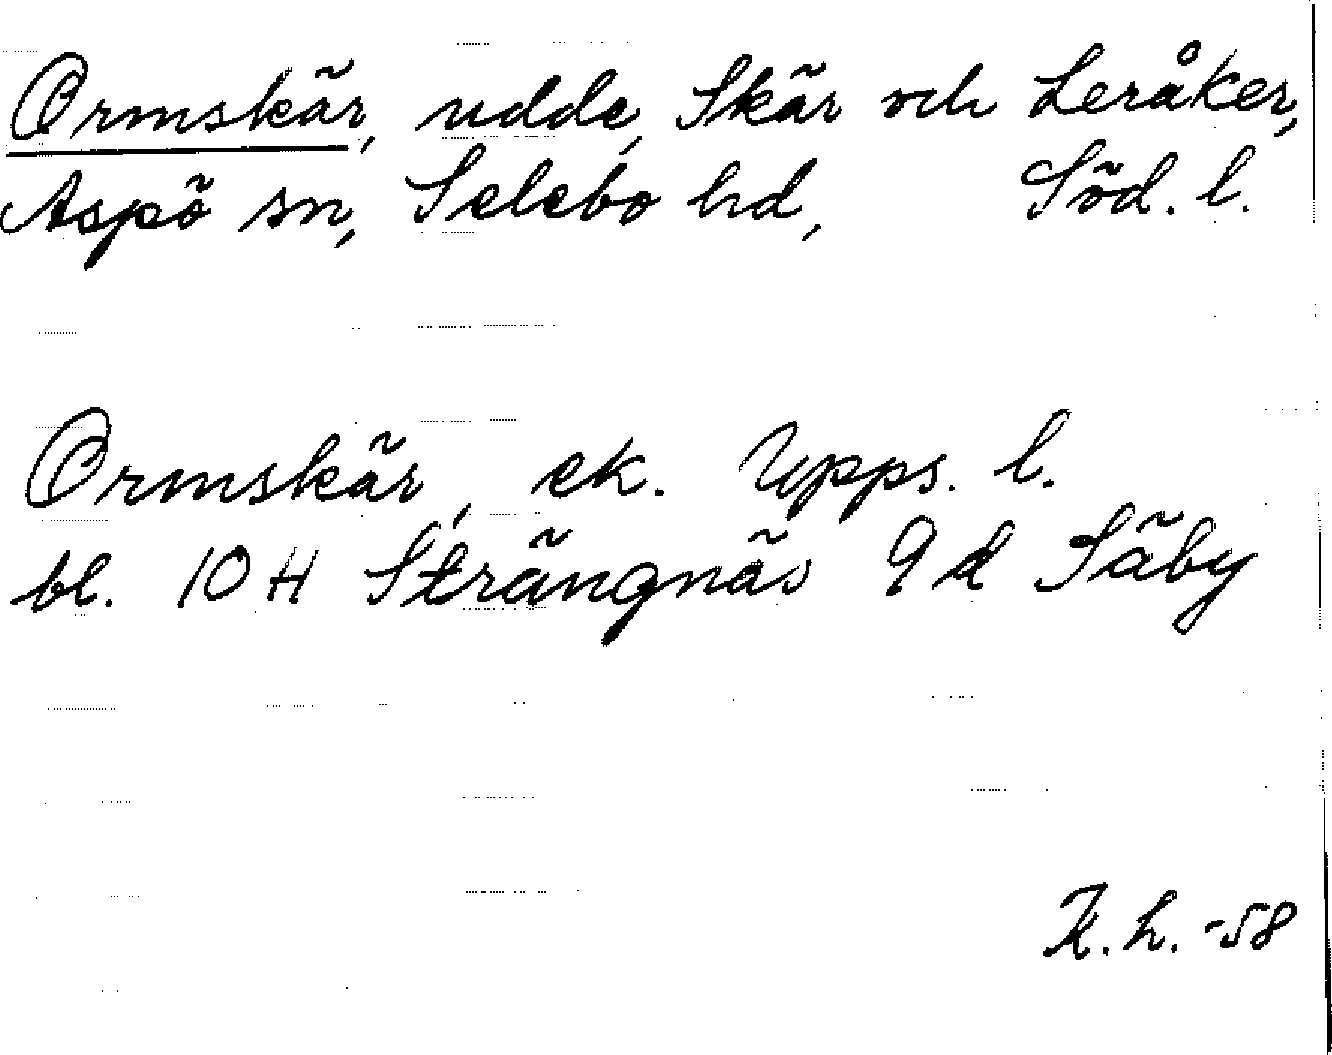 Ormskär, udde, Skär och Leråker,
Aspö sn, Selebo hd, Söd. l.
Ormskär, ek. Upps. l.
bl. 10 H Strängnäs 9 d Säby
K. L. -58